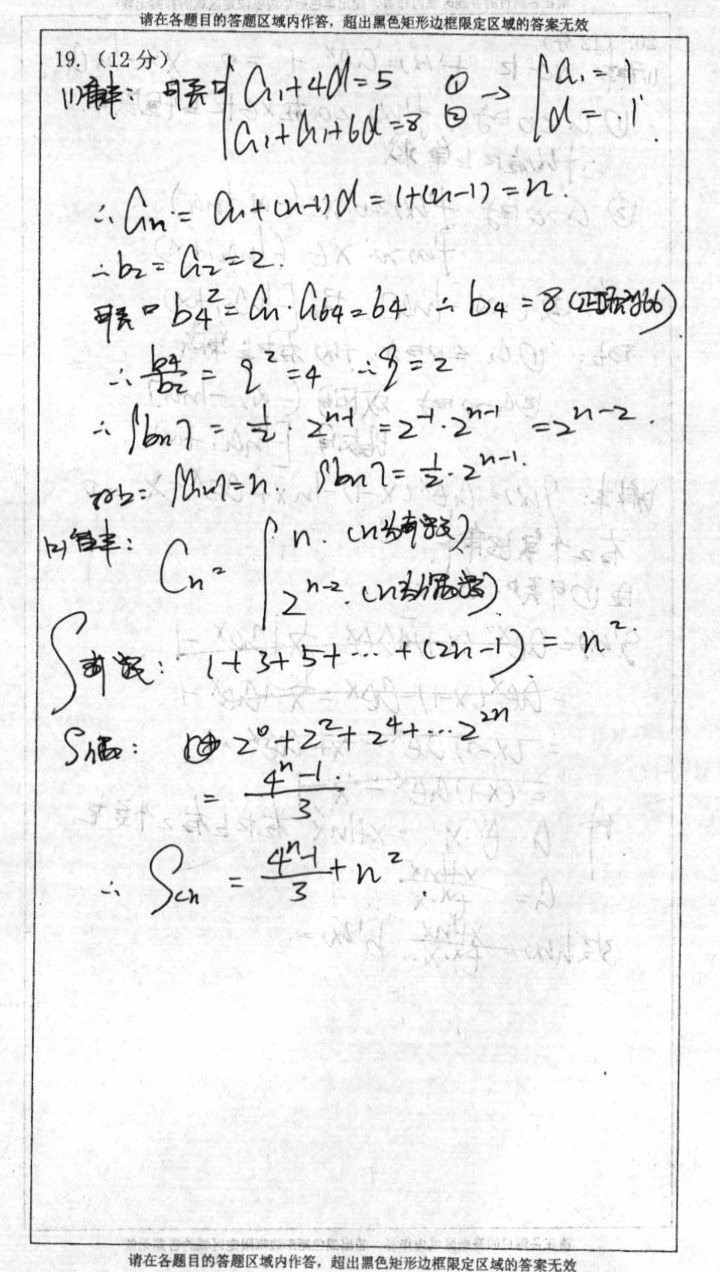 请在各题目的答题区域内作答，超出黑色矩形边框限定区域的答案无效
19.（12分）
(1)解: 可知 { a₁+4d=5 ① → { a₁=1
a₁+a₁+6d=8 ② d=1.
∴ aₙ = a₁+(n-1)d = 1+(n-1) = n.
∴ b₂ = a₂ = 2.
可知 b₄² = a₁·a₆₄ = 64 ∴ b₄ = 8 (正项)
∴ b₄/b₂ = q² = 4 ∴ q = 2
∴ {bₙ} = 1/2 · 2ⁿ⁻¹ = 2⁻¹·2ⁿ⁻¹ = 2ⁿ⁻².
{aₙ} = n. {bₙ} = 1/2 · 2ⁿ⁻¹.
(2)解: Cₙ = { n. (n为奇数)
2ⁿ⁻². (n为偶数)
S奇数: 1+3+5+⋯+(2n-1) = n²
S偶: 2⁰+2²+2⁴+⋯2²ⁿ
= (4ⁿ-1)/3
∴ Scₙ = (4ⁿ-1)/3 + n².
请在各题目的答题区域内作答，超出黑色矩形边框限定区域的答案无效